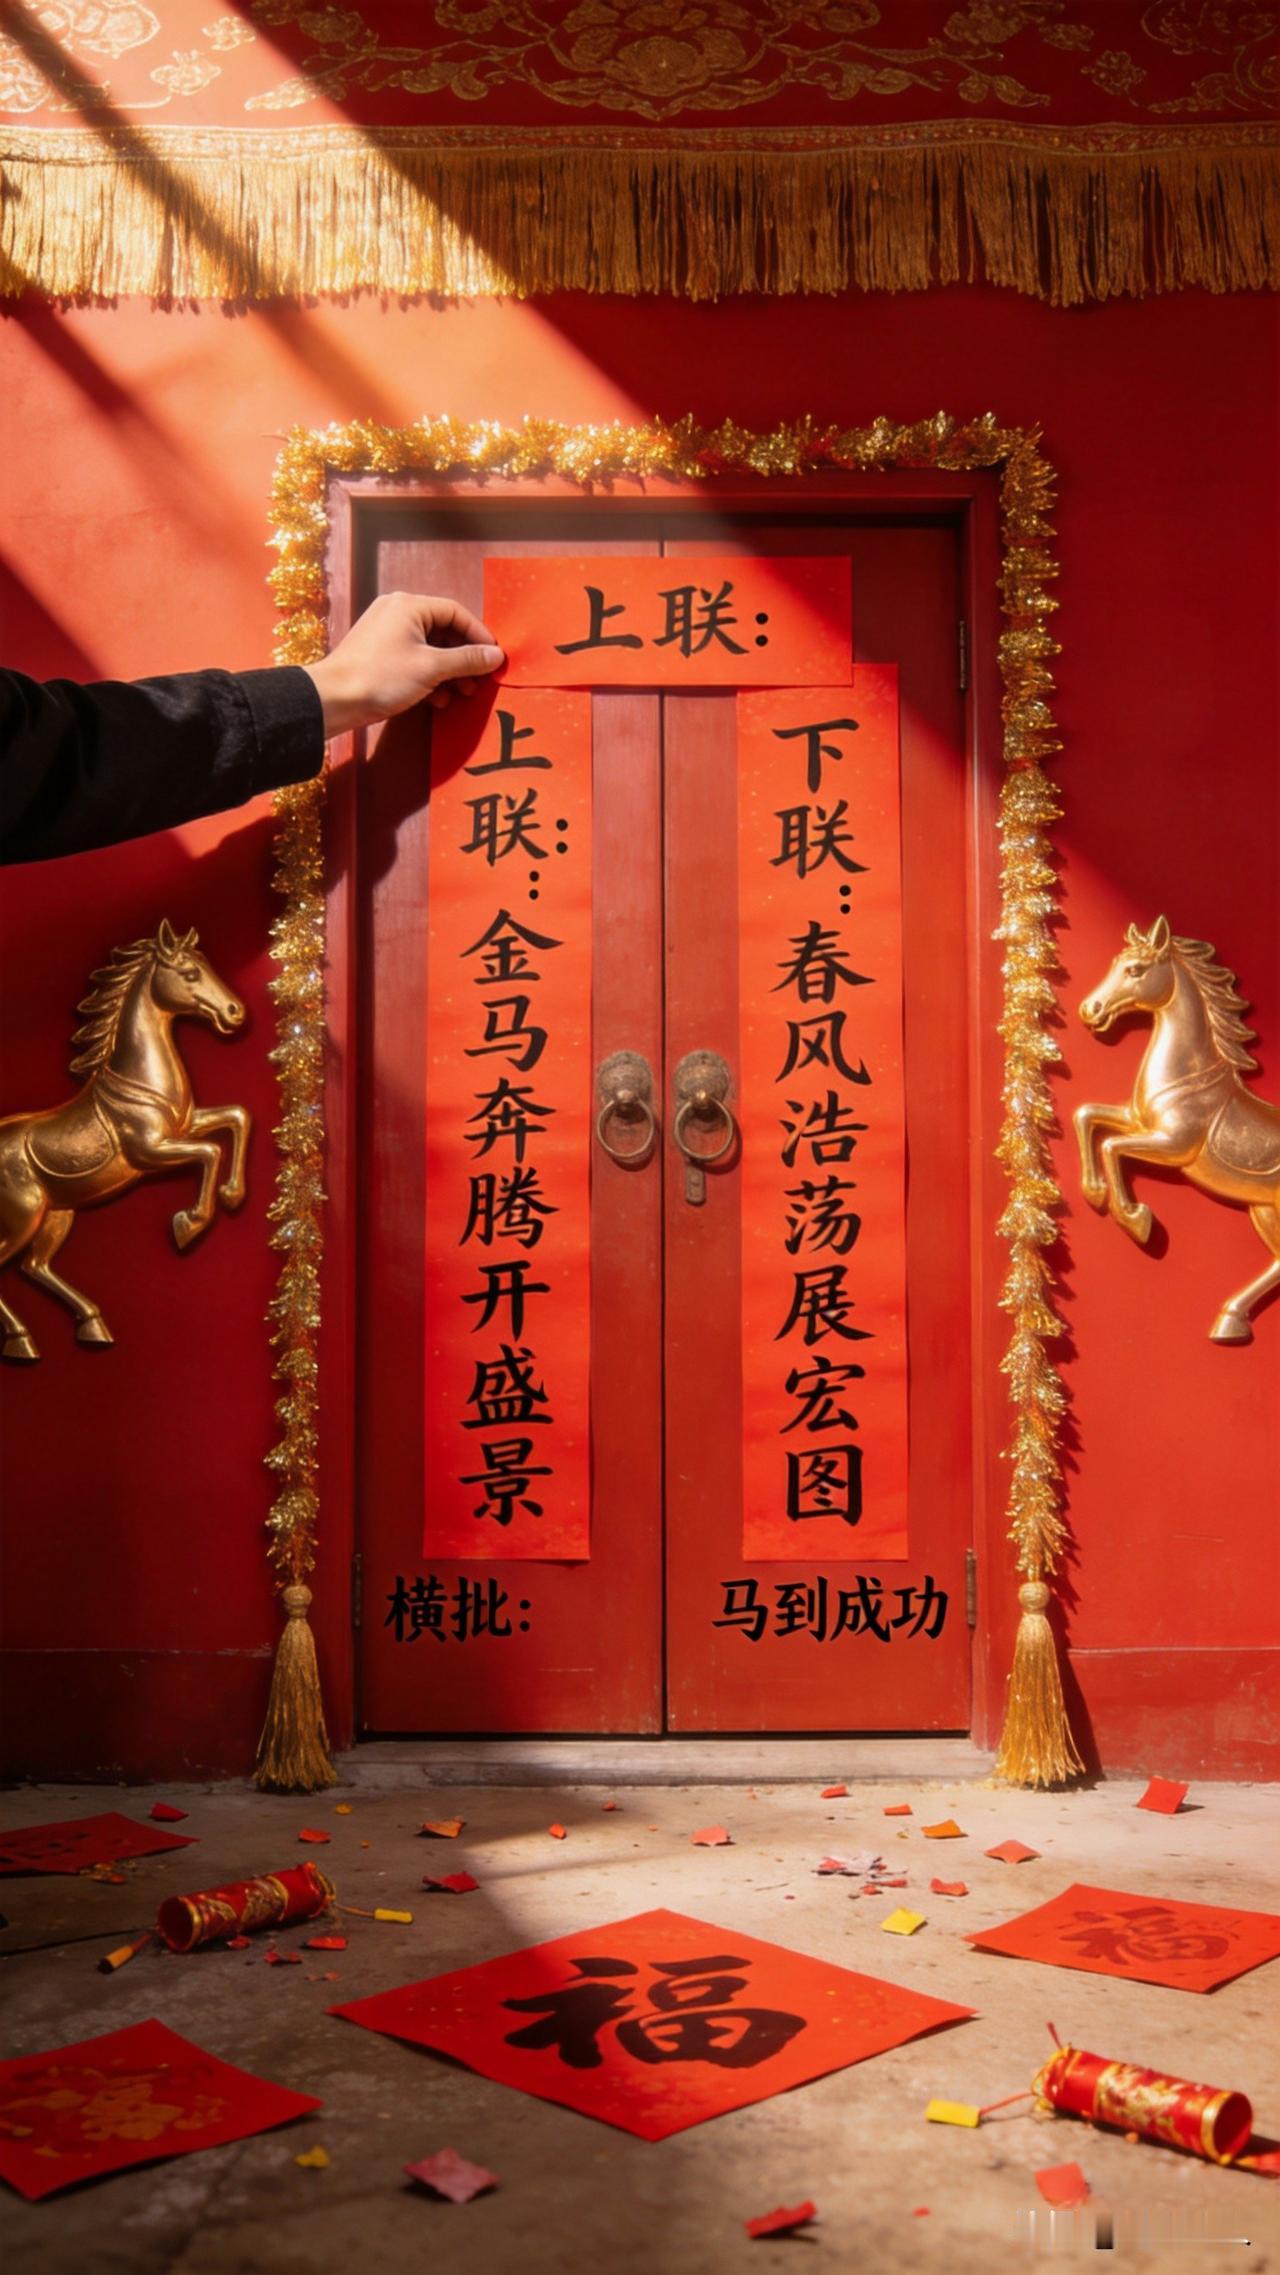 上联：
上联：：金马奔腾开盛景
下联：春风浩荡展宏图
横批：
马到成功
福
福